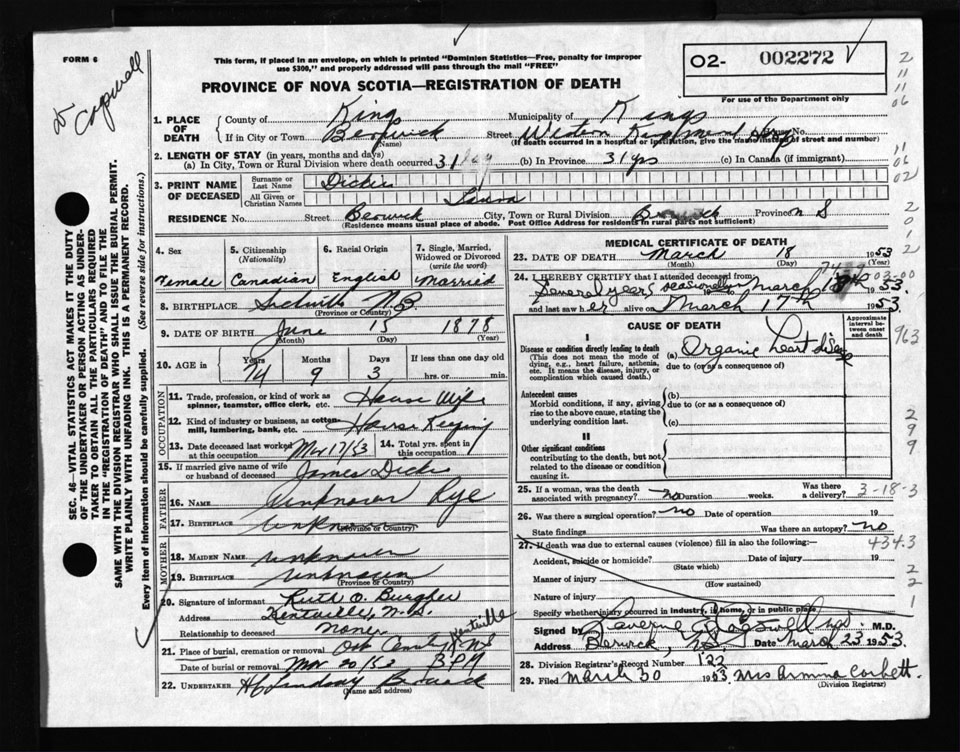 FORM 6
This form, if placed in an envelope, on which is printed "Dominion Statistics—Free, penalty for improper
use $300," and properly addressed will pass through the mail "FREE"
O2- 002272
For use of the Department only
PROVINCE OF NOVA SCOTIA—REGISTRATION OF DEATH
Dr Cogswell
SEC. 46—VITAL STATISTICS ACT MAKES IT THE DUTY
OF THE UNDERTAKER OR PERSON ACTING AS UNDER-
TAKER TO OBTAIN ALL THE PARTICULARS REQUIRED
IN THE "REGISTRATION OF DEATH" AND TO FILE THE
SAME WITH THE DIVISION REGISTRAR WHO SHALL ISSUE THE BURIAL PERMIT.
WRITE PLAINLY WITH UNFADING INK. THIS IS A PERMANENT RECORD.
Every item of information should be carefully supplied. (See reverse side for instructions.)
1. PLACE OF DEATH County of Kings Municipality of Kings
If in City or Town Berwick (Name) Street Western Hosp House No.
(If death occurred in a hospital or institution, give the name instead of street and number)
2. LENGTH OF STAY (in years, months and days)
(a) In City, Town or Rural Division where death occurred 31 (b) In Province 31 yrs (c) In Canada (if immigrant)
3. PRINT NAME OF DECEASED Surname or Last Name Dickie
All Given or Christian Names Laura
RESIDENCE No. Street Berwick City, Town or Rural Division Berwick Province N S
(Residence means usual place of abode. Post Office Address for residents in rural parts not sufficient)
4. Sex Female
5. Citizenship (Nationality) Canadian
6. Racial Origin English
7. Single, Married, Widowed or Divorced (write the word) Married
8. BIRTHPLACE N.B.
(Province or Country)
9. DATE OF BIRTH June 15 1878
(Month) (Day) (Year)
10. AGE in Years 74 Months 9 Days 3 If less than one day old hrs. or min.
OCCUPATION
11. Trade, profession, or kind of work as spinner, teamster, office clerk, etc. House Wife
12. Kind of industry or business, as cotton-mill, lumbering, bank, etc. House Keeping
13. Date deceased last worked at this occupation Mar 17/53 14. Total yrs. spent in this occupation
15. If married give name of wife or husband of deceased James Dickie
FATHER
16. NAME Unknown Rye
17. BIRTHPLACE Unknown
(Province or Country)
MOTHER
18. MAIDEN NAME Unknown
19. BIRTHPLACE Unknown
(Province or Country)
20. Signature of informant Ruth O. Burgher
Address Kentville, N.S.
Relationship to deceased None
21. Place of burial, cremation or removal Oak Kentville NS
Date of burial or removal Mar 20/53 3 PM
22. UNDERTAKER Lindsay Berwick
(Name and address)
MEDICAL CERTIFICATE OF DEATH
23. DATE OF DEATH March 18 1953
(Month) (Day) (Year)
24. I HEREBY CERTIFY that I attended deceased from:
Several years occasionally March 18th 1953.
and last saw her alive on March 17th 1953.
CAUSE OF DEATH
Approximate interval between onset and death
I
Disease or condition directly leading to death
(This does not mean the mode of dying, e.g., heart failure, asthenia, etc. It means the disease, injury, or complication which caused death.)
(a) Organic heart disease
due to (or as a consequence of)
Antecedent causes
Morbid conditions, if any, giving rise to the above cause, stating the underlying condition last.
(b)
due to (or as a consequence of)
(c)
II
Other significant conditions
contributing to the death, but not related to the disease or condition causing it.
25. If a woman, was the death associated with pregnancy? no Duration weeks. Was there a delivery?
3-18-3
26. Was there a surgical operation? no Date of operation 19
State findings Was there an autopsy? no
434.3
27. If death was due to external causes (violence) fill in also the following:—
Accident, suicide or homicide? Date of injury 19
(State which)
Manner of injury
(How sustained)
Nature of injury
Specify whether injury occurred in industry, in home, or in public place
Signed by Laverne Cogswell M.D.
Address Berwick, N.S. Date March 23 1953.
28. Division Registrar's Record Number 122
29. Filed March 30 1953 Mrs Armina Corbett.
(Division Registrar)
2
11
06
11
06
02
2
0
1
2
03-00
963
2
9
9
2
2
1